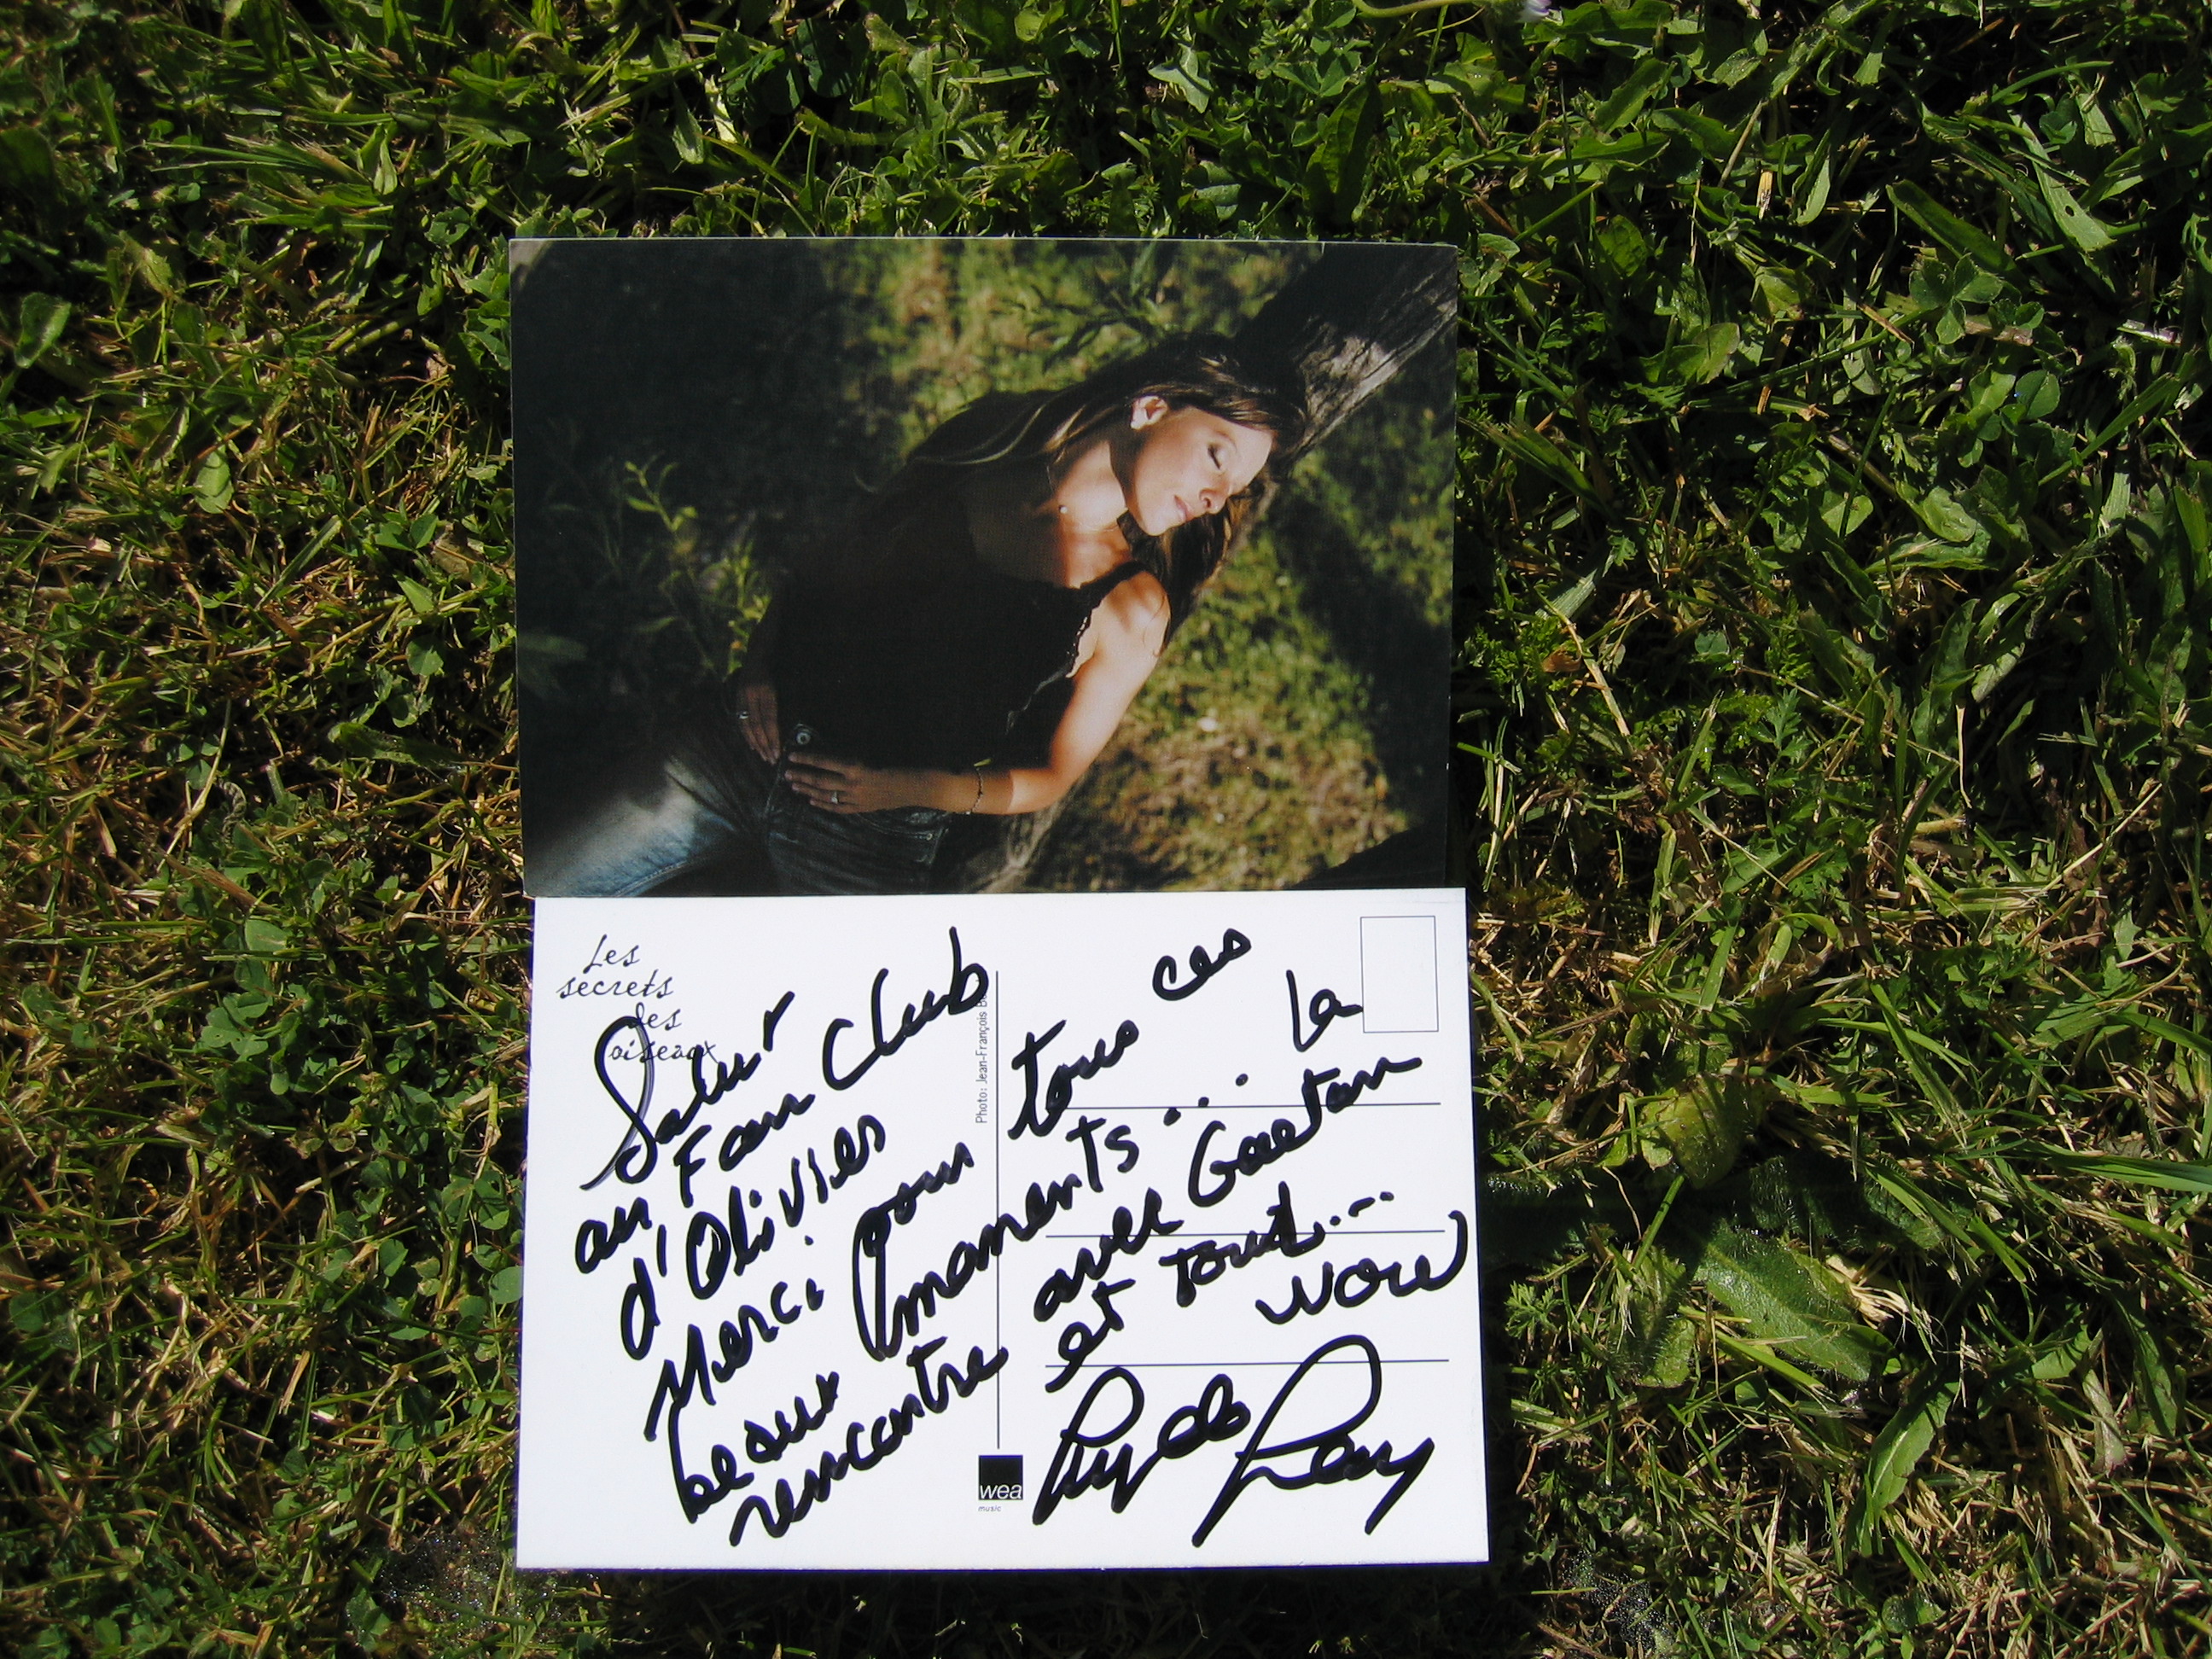 Les
secrets
des
oiseaux
Salut
au Fan Club
d'Olivier
Merci pour tous ces
beaux moments... la
rencontre avec Gaetan
et tout...
wow
Photo: Jean-François
wea
music